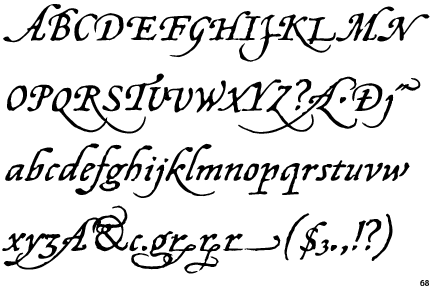 ABCDEFGHIJKLMN
OPQRSTUVWXYZ?A·Đj˜
abcdefghijklmnopqrstuvw
xyzA&c.grrr($3.,!?)
68